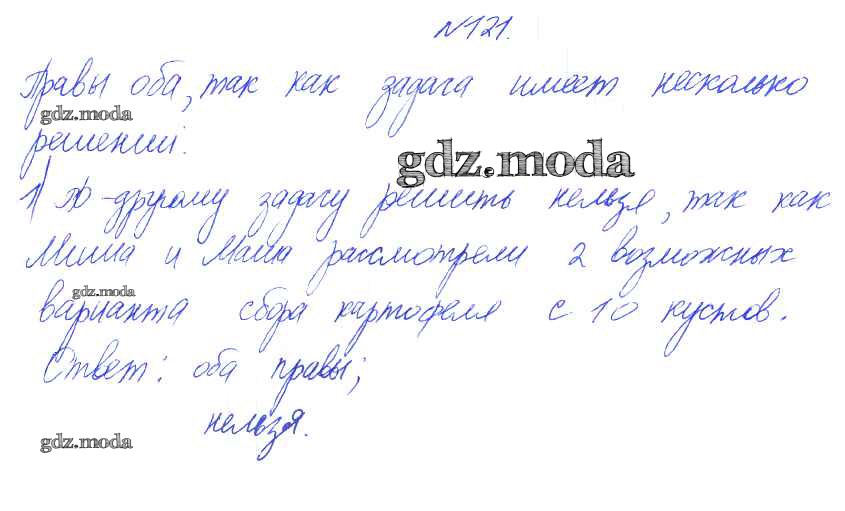 №121.
Правы оба, так как задача имеет несколько
gdz.moda
решений:
gdz.moda
1) По-другому задачу решить нельзя, так как
Миша и Маша рассмотрели 2 возможных
gdz.moda
варианта сбора картофеля с 10 кустов.
Ответ: оба правы;
нельзя.
gdz.moda